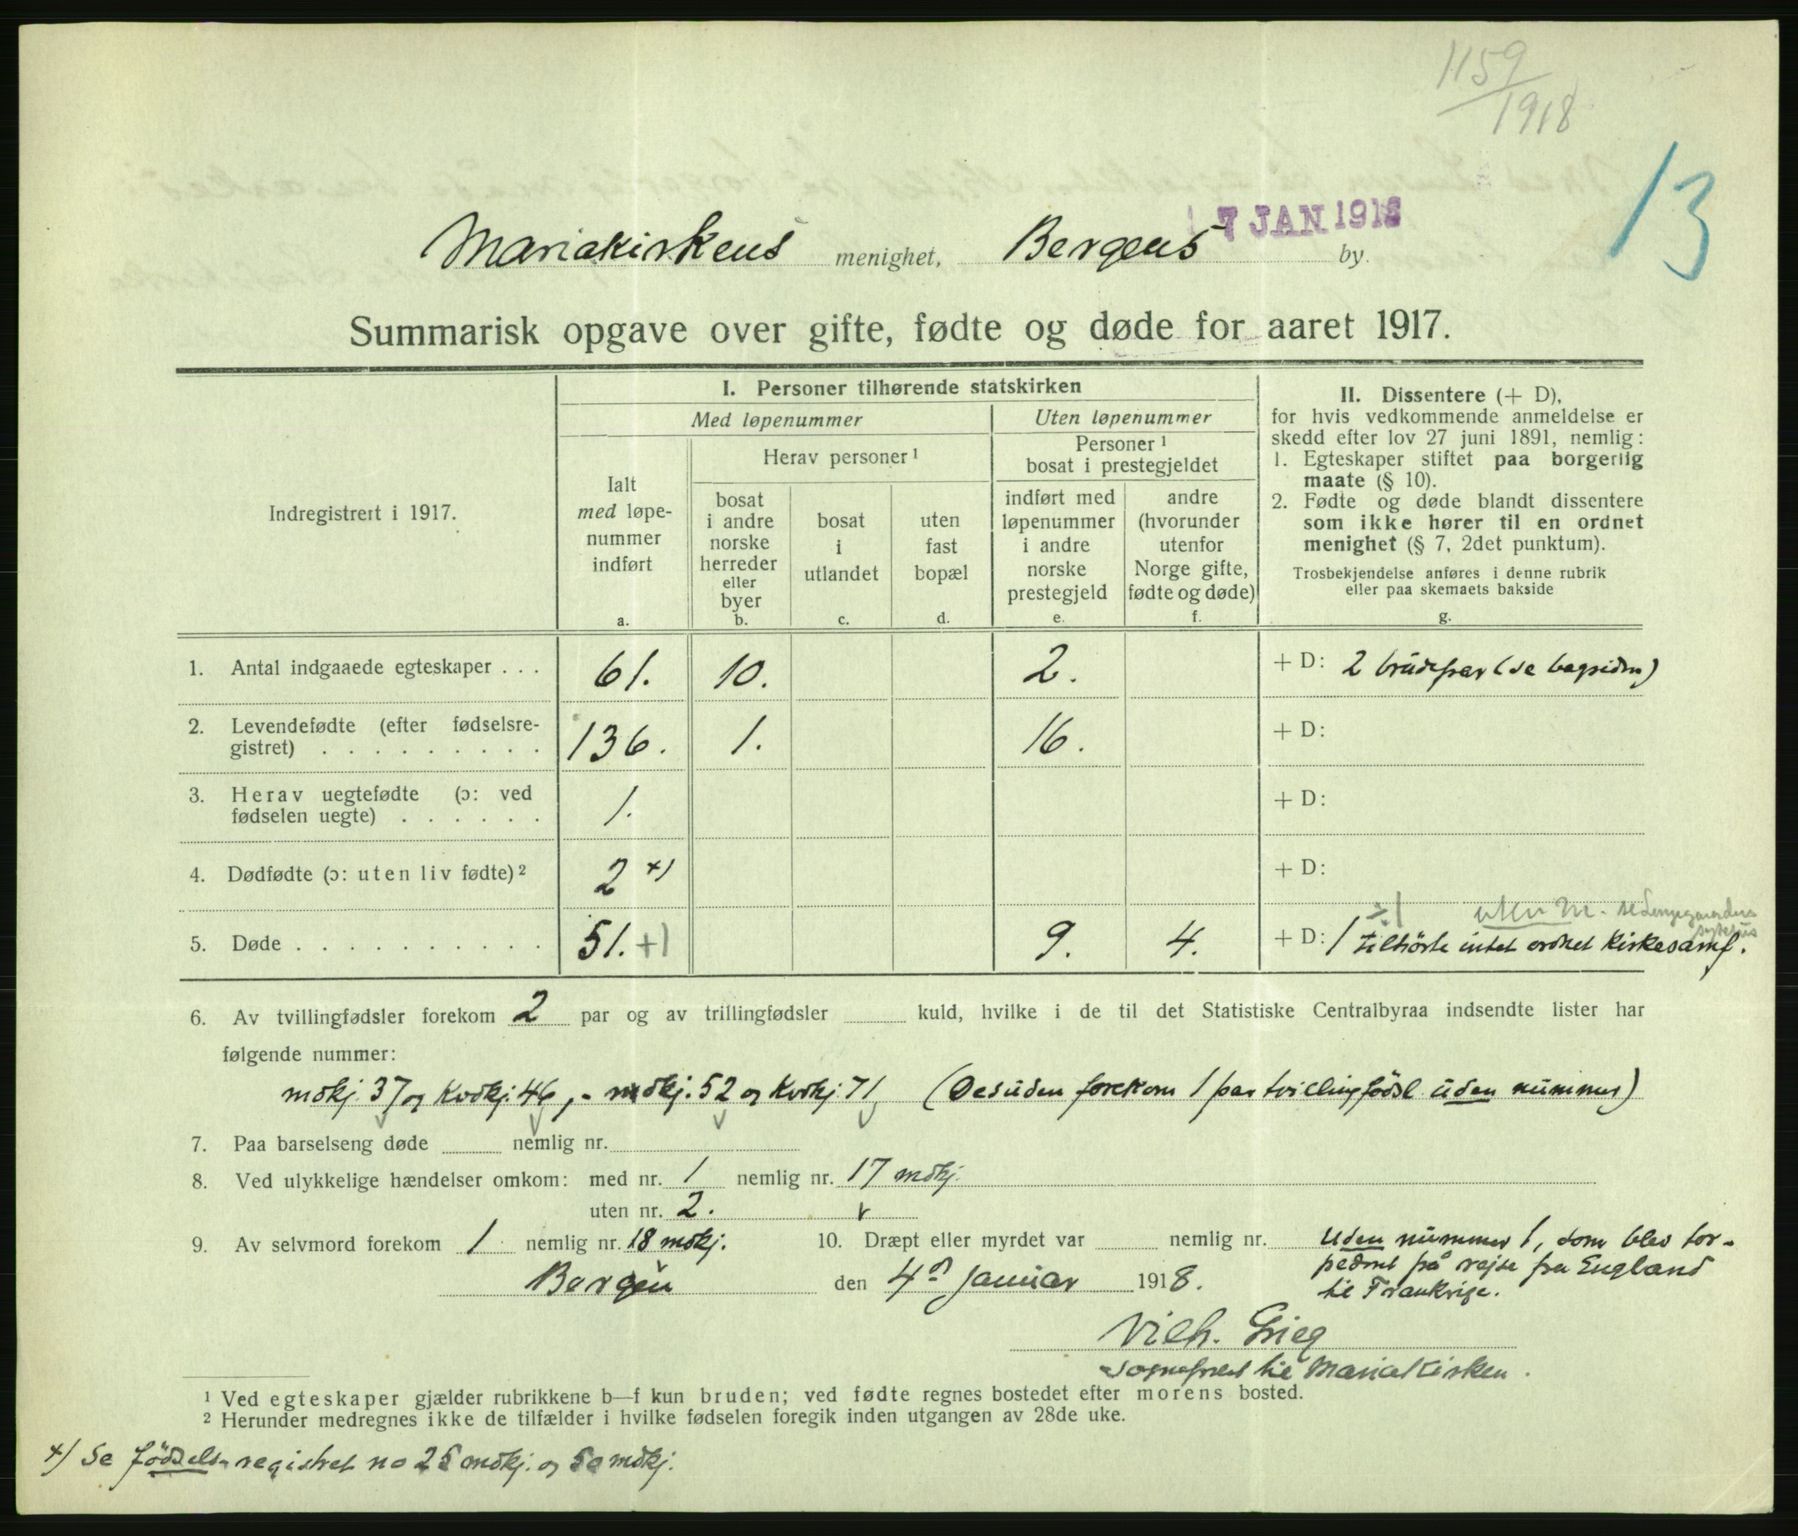 1159/1918
13
7 JAN 1918
Mariakirkens menighet, Bergens by.
Summarisk opgave over gifte, fødte og døde for aaret 1917.
Indregistrert i 1917.
I. Personer tilhørende statskirken
Med løpenummer
Uten løpenummer
Ialt
med løpe-
nummer
indført
a.
Herav personer ¹
bosat
i andre
norske
herreder
eller
byer
b.
bosat
i
utlandet
c.
uten
fast
bopæl
d.
Personer ¹
bosat i prestegjeldet
indført med
løpenummer
i andre
norske
prestegjeld
e.
andre
(hvorunder
utenfor
Norge gifte,
fødte og døde)
f.
II. Dissentere (+ D),
for hvis vedkommende anmeldelse er
skedd efter lov 27 juni 1891, nemlig:
1. Egteskaper stiftet paa borgerlig
maate (§ 10).
2. Fødte og døde blandt dissentere
som ikke hører til en ordnet
menighet (§ 7, 2det punktum).
Trosbekjendelse anføres i denne rubrik
eller paa skemaets bakside
g.
1. Antal indgaaede egteskaper . . . 61. 10. 2. + D: 2 brudepar (se bagsiden)
2. Levendefødte (efter fødselsre-
gistret) . . . . . . . . . 136. 1. 16. + D:
3. Herav uegtefødte (ɔ: ved
fødselen uegte) . . . . . . 1. + D:
4. Dødfødte (ɔ: uten liv fødte) ² 2 +) + D:
uten m. se
5. Døde . . . . . . . . . . 51. +1 9. 4. + D: 1 tilhørte intet ordnet kirkesamf.
6. Av tvillingfødsler forekom 2 par og av trillingfødsler kuld, hvilke i de til det Statistiske Centralbyraa indsendte lister har
følgende nummer:
mdkj. 37 og Kvdkj. 46, - mdkj. 52 og Kvdkj. 71 (Desuden forekom 1 par tvillingfødsl. uden nummer)
7. Paa barselseng døde nemlig nr.
8. Ved ulykkelige hændelser omkom: med nr. 1 nemlig nr. 17 mdkj.
uten nr. 2.
9. Av selvmord forekom 1 nemlig nr. 18 mdkj. 10. Dræpt eller myrdet var nemlig nr. Uden nummer 1, som blev tor-
pedret på rejse fra England
til Frankrige.
Bergen den 4de Januar 1918.
Vilh. Grieg
Sogneprest til Mariakirken.
¹ Ved egteskaper gjælder rubrikkene b—f kun bruden; ved fødte regnes bostedet efter morens bosted.
² Herunder medregnes ikke de tilfælder i hvilke fødselen foregik inden utgangen av 28de uke.
+) Se fødsels-registret no 25 mdkj. og 50 mdkj.